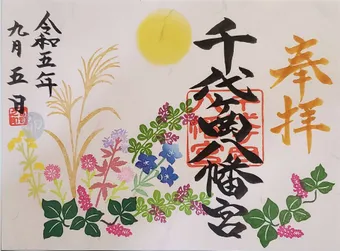 奉拝
千代ヶ岡八幡宮
令和五年
九月五日